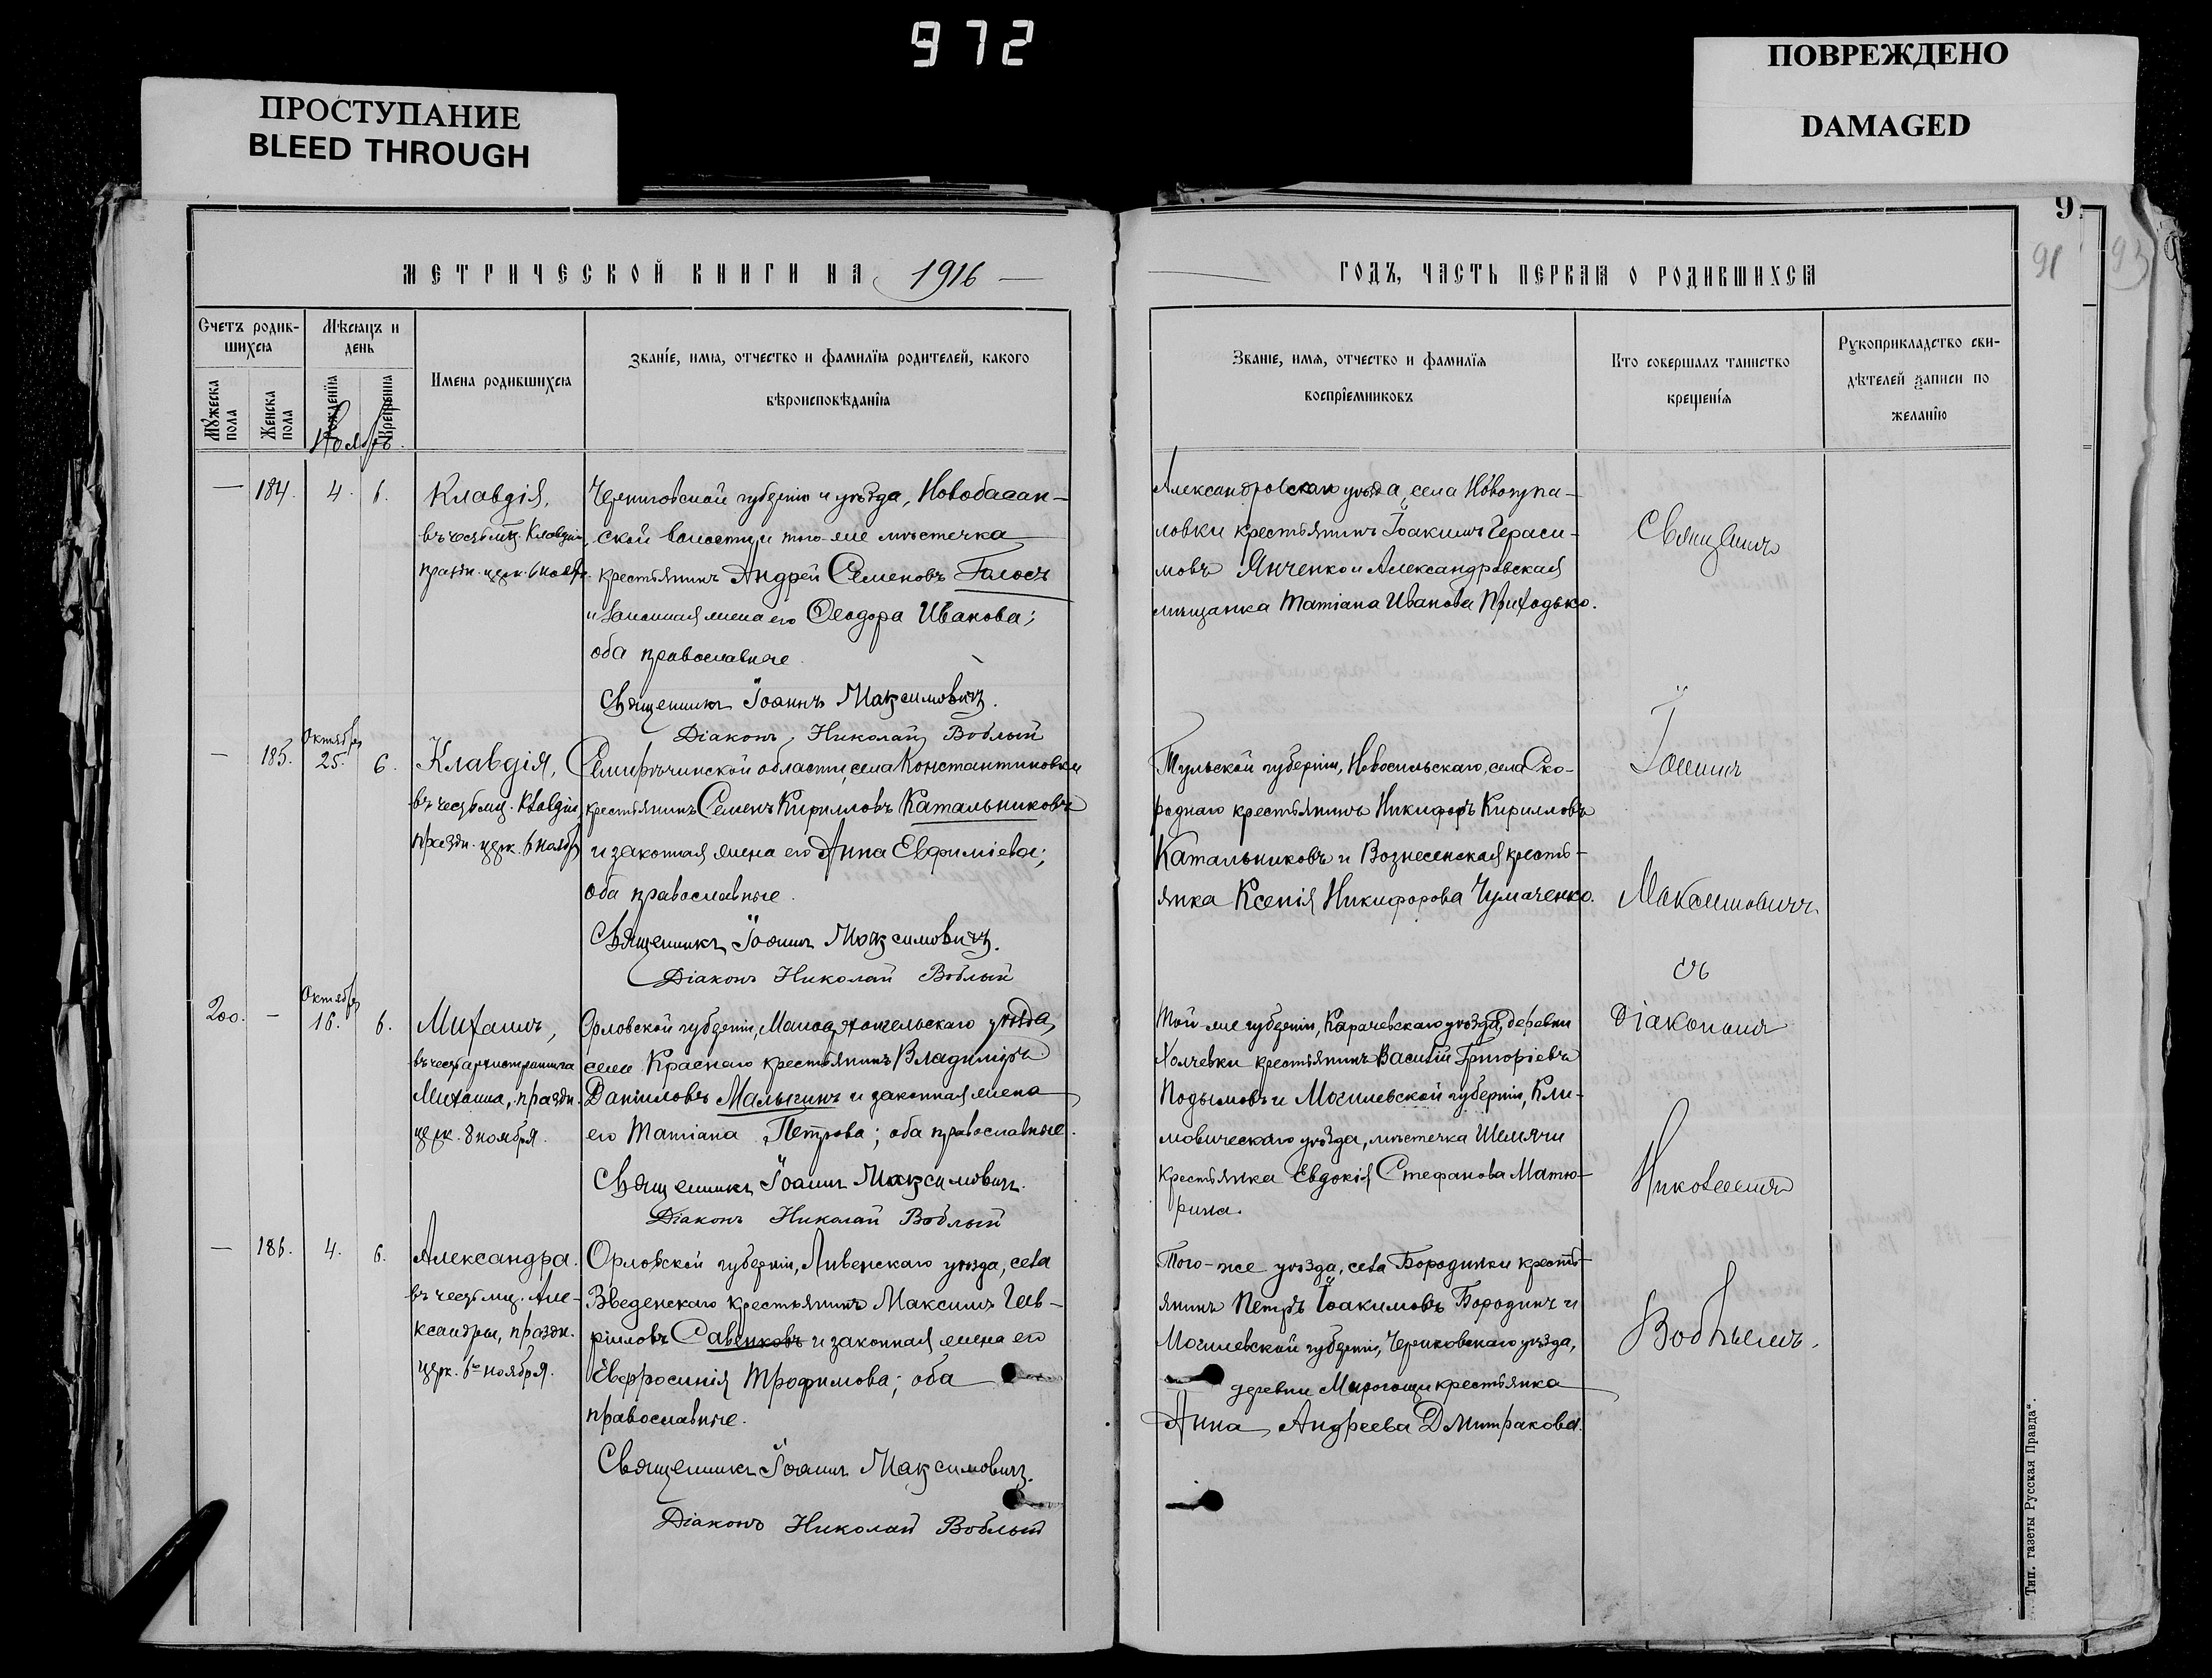 972
ПРОСТУПАНИЕ
BLEED THROUGH
ПОВРЕЖДЕНО
DAMAGED
МЕТРИЧЕСКОЙ КНИГИ НА 1916
Счетъ родив-
шихся
Мѣсяцъ и
день
Имена родившихся
Званіе, имя, отчество и фамилія родителей, какого
вѣроисповѣданія
Мужеска
пола
Женска
пола
Рожденія
Крещенія
Ноябрь.
— 184. 4. 6.
Клавдія,
въ честь мц. Клавдіи,
праздн. церк. 6 ноября.
Черниговской губерніи и уѣзда, Новобасан-
ской волости и того-же мѣстечка
крестьянинъ Андрей Семеновъ Голосъ
и законная жена его Ѳеодора Иванова;
оба православные.
Священникъ Іоаннъ Максимовичъ.
Діаконъ Николай Воблый
— 185. Октября 25. 6.
Клавдія,
въ честь мц. Клавдіи,
праздн. церк. 6 ноября
Семирѣчинской области, села Константиновки
крестьянинъ Семенъ Кирилловъ Катальниковъ
и законная жена его Анна Евфиміева;
оба православные.
Священникъ Іоаннъ Максимовичъ.
Діаконъ Николай Воблый
200. — Октября 16. 6.
Михаилъ,
въ честь архистратига
Михаила, праздн.
церк. 8 ноября.
Орловской губерніи, Малоархангельскаго уѣзда,
села Краснаго крестьянинъ Владиміръ
Даніиловъ Малыгинъ и законная жена
его Татіана Петрова; оба православные.
Священникъ Іоаннъ Максимовичъ.
Діаконъ Николай Воблый
— 186. 4. 6.
Александра.
въ честь мц. Але-
ксандры, праздн.
церк. 6го ноября.
Орловской губерніи, Ливенскаго уѣзда, села
Введенскаго крестьянинъ Максимъ Гав-
рииловъ Савенковъ и законная жена его
Евфросинія Трофимова; оба
православные.
Священникъ Іоаннъ Максимовичъ.
Діаконъ Николай Воблый
9
91
93
ГОДЪ, ЧАСТЬ ПЕРВАЯ О РОДИВШИХСЯ
Званіе, имя, отчество и фамилія
воспріемниковъ
Кто совершалъ таинство
крещенія
Рукоприкладство сви-
дѣтелей записи по
желанію
Александровскаго уѣзда, села Новогупа-
ловки крестьянинъ Іоакимъ Гераси-
мовъ Янченко и Александровская
мѣщанка Татіана Иванова Приходько.
Тульской губерніи, Новосильскаго, села Ско-
роднаго крестьянинъ Никифоръ Кирилловъ
Катальниковъ и Вознесенская кресть-
янка Ксенія Никифорова Чумаченко.
Той-же губерніи, Карачевскаго уѣзда, деревни
Холчевки крестьянинъ Василій Григоріевъ
Подымовъ и Могилевской губерніи, Кли-
мовическаго уѣзда, мѣстечка Шемячи
крестьянка Евдокія Стефанова Матю-
рина.
Того-же уѣзда, села Бородинки кресть-
янинъ Петръ Іоакимовъ Бородинъ и
Могилевской губерніи, Чериковскаго уѣзда,
деревни крестьянка
Анна Андреева Дмитракова.
Священникъ
Іоаннъ
Максимовичъ
съ
Діакономъ
Николаемъ
Воблымъ.
Тип. газеты Русская Правда".